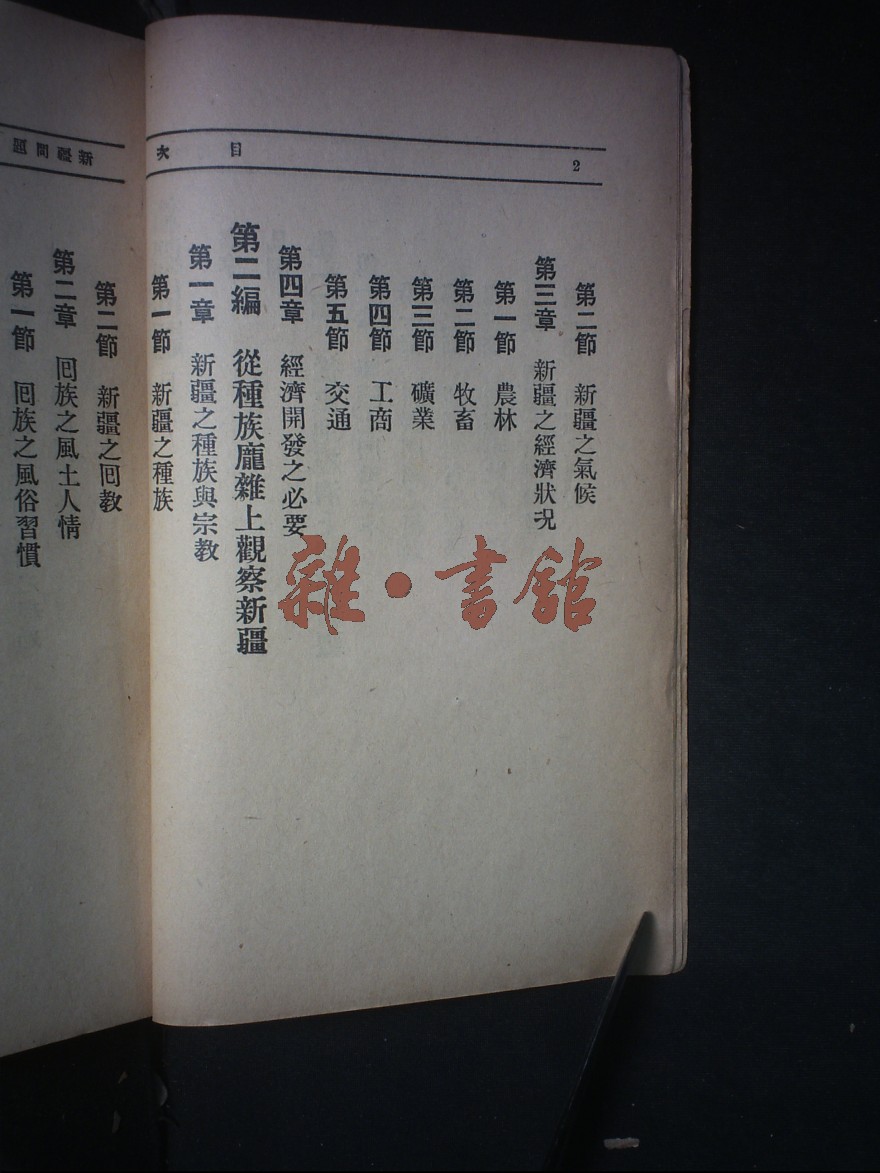 2
目次
第二節 新疆之氣候
第三章 新疆之經濟狀況
第一節 農林
第二節 牧畜
第三節 礦業
第四節 工商
第五節 交通
第四章 經濟開發之必要
第二編 從種族龐雜上觀察新疆
第一章 新疆之種族與宗教
第一節 新疆之種族
新疆問題
第二節 新疆之囘教
第二章 囘族之風土人情
第一節 囘族之風俗習慣
雜·書館